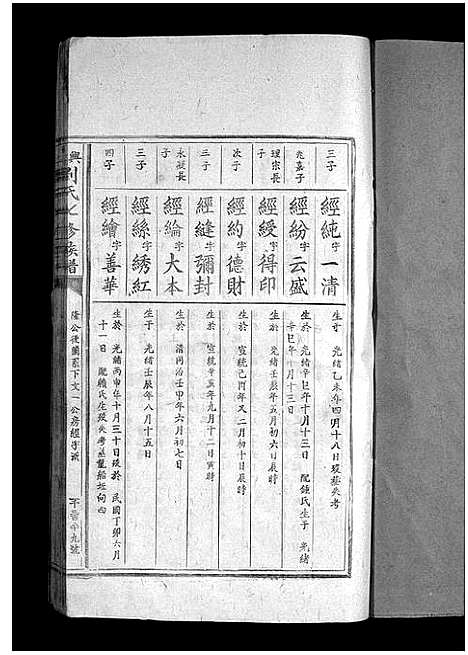 三子
經純字一清
生于 光緒乙未年四月十八日歿葬失考
兆嘉子
經紛字云盛
生於 光緒辛巳年十月十三日 配鍾氏生于 光緒
辛巳年十月十三日
理宗長子
經綬字得印
生於 光緒壬辰年五月初六日辰時
次子
經約字德財
生於 宣統己酉年又二月初十日辰時
三子
經縫字彌封
生於 宣統辛亥年九月十二日寅時
永莊長子
經綸字大本
生於 清同治壬申年六月初七日
三子
經絲字綉紅
生于 光緒壬辰年八月十五日
四子
經繪字善華
生於 光緒丙申年十月三十日歿於 民國丁卯六月
十一日 配賴氏生歿失考葬龍船坵向四
興劉氏七修族譜
隆公後 下文一公房經字派